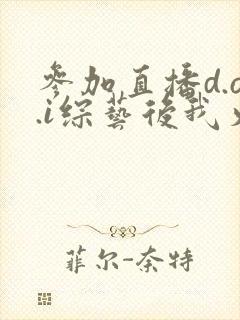 参加直播d.o
.i综艺後我火
菲尔-奈特